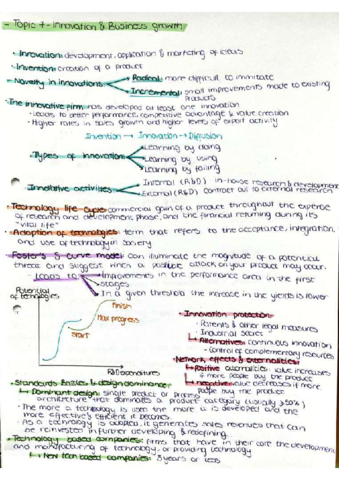 - Topic 4 - Innovation & Business growth
- Innovation: development, application & marketing of ideas
- Invention: creation of a product
- Novelty in innovations
Radical: more difficult to immitate
Incremental: small improvements made to existing
products
- The innovative firm: has developed at least one innovation
- Leads to better performance, competitive advantage & value creation
- Higher rates in sales growth and higher levels of export activity
Invention → Innovation → Diffusion
- Types of innovation
Learning by doing
Learning by using
Learning by failing
- Innovative activities
Internal (R&D): in-house research & development
External (R&D): contract out to external research
- Technology life cycle: commercial gain of a product throughout the expense
of research and development phase, and the financial returning during its
"vital life"
- Adoption of technologies: term that refers to the acceptance, integration,
and use of technology in society
- Foster's S curve model: can illuminate the magnitude of a potential
threat and suggest when a possible attack on your product may occur.
Leads to
Improvements in the performance area in the first
stages
In a given threshold the increase in the yields is lower
Potential
of technologies
Finish
Max progress
Start
R&D expenditures
- Innovation protection
- Patents & other legal measures
- Industrial secret
- Alternatives: continuous innovation
- Control of complementary resources
- Network effects & externalities
- Positive externalities: value increases
if more people buy the product
- Negative: value decreases if more
people buy the product
- Standards Battles & design dominance
- Dominant design: single product or process
architecture that dominates a product category (usually ≥50%)
- The more a technology is used the more it is developed and the
more effective & efficient it becomes
- As a technology is adopted, it generates sales revenues that can
be reinvested in further developing & redefining.
- Technology based companies: firms that have in their core the development
and manufacturing of technology, or providing technology
- New tech based companies: 5 years or less